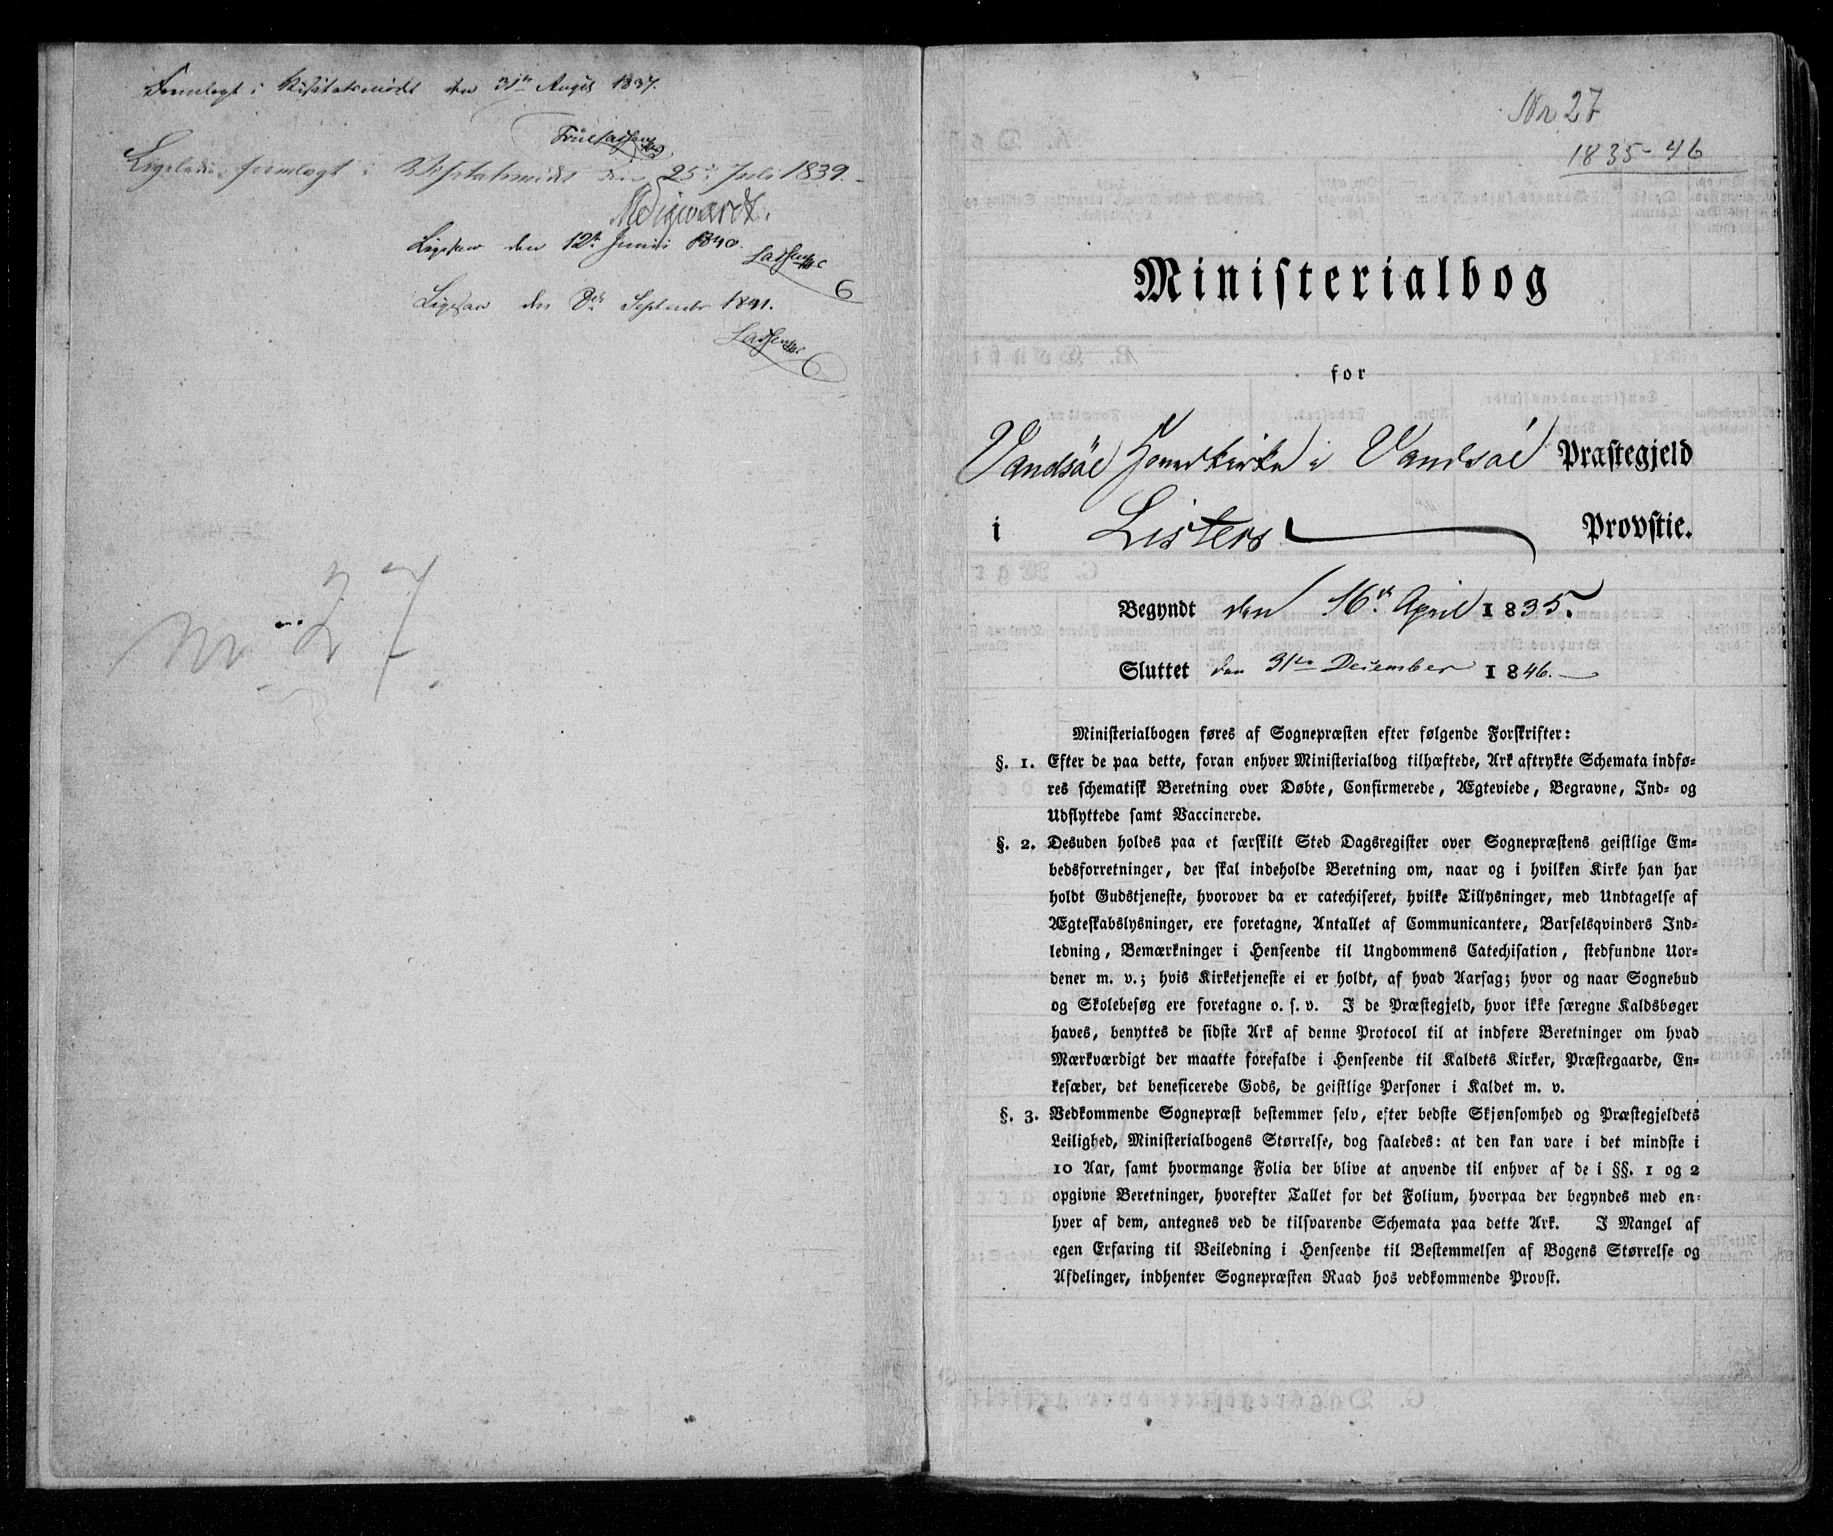 Fremlagt i Visitatsmødet den 31te Augst 1837.
Ligeledes fremlagt i Visitatsmødet den 25de Juli 1839.
Ligesaa den 12te Junii 1840.
Ligesaa den 8de September 1841.
Nr 27
Nr 27
1835-46
Ministerialbog
for
Vandsöe Hovedkirke i Vandsöe Præstegjeld
i Listers Provstie.
Begyndt den 16de April 1835.
Sluttet den 31te December 1846.
Ministerialbogen føres af Sognepræsten efter følgende Forskrifter:
§. 1. Efter de paa dette, foran enhver Ministerialbog tilhæftede, Ark aftrykte Schemata indfø-
res schematisk Beretning over Døbte, Confirmerede, Ægteviede, Begravne, Ind- og
Udflyttede samt Vaccinerede.
§. 2. Desuden holdes paa et særskilt Sted Dagsregister over Sognepræstens geistlige Em-
bedsforretninger, der skal indeholde Beretning om, naar og i hvilken Kirke han har
holdt Gudstjeneste, hvorover da er catechiseret, hvilke Tillysninger, med Undtagelse af
Ægteskabslysninger, ere foretagne, Antallet af Communicantere, Barselsqvinders Ind-
ledning, Bemærkninger i Henseende til Ungdommens Catechisation, stedfundne Uor-
dener m. v.; hvis Kirketjeneste ei er holdt, af hvad Aarsag; hvor og naar Sognebud
og Skolebesøg ere foretagne o. s. v. I de Præstegjeld, hvor ikke særegne Kaldsbøger
haves, benyttes de sidste Ark af denne Protocol til at indføre Beretninger om hvad
Mærkværdigt der maatte forefalde i Henseende til Kaldets Kirker, Præstegaarde, En-
kesæder, det beneficerede Gods, de geistlige Personer i Kaldet m. v.
§. 3. Vedkommende Sognepræst bestemmer selv, efter bedste Skjønsomhed og Præstegjeldets
Leilighed, Ministerialbogens Størrelse, dog saaledes: at den kan vare i det mindste i
10 Aar, samt hvormange Folia der blive at anvende til enhver af de i §§. 1 og 2
opgivne Beretninger, hvorefter Tallet for det Folium, hvorpaa der begyndes med en-
hver af dem, antegnes ved de tilsvarende Schemata paa dette Ark. I Mangel af
egen Erfaring til Veiledning i Henseende til Bestemmelsen af Bogens Størrelse og
Afdelinger, indhenter Sognepræsten Raad hos vedkommende Provst.